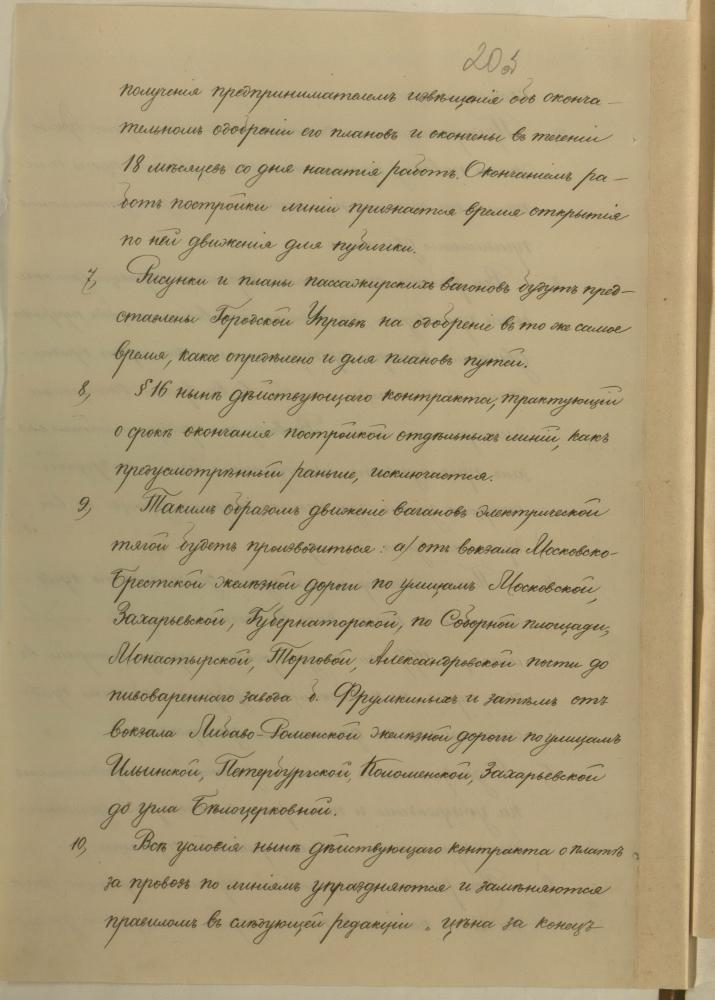 20 об
получения предпринимателемъ извѣщенія объ оконча-
тельномъ одобреніи его плановъ и окончены въ теченіи
18 мѣсяцевъ со дня начатія работъ. Окончаніемъ ра-
ботъ постройки линіи признается время открытія
по ней движенія для публики.
7, Рисунки и планы пассажирскихъ вагоновъ будутъ пред-
ставлены Городской Управѣ на одобреніе въ то же самое
время, какое опредѣлено и для плановъ путей.
8, § 16 нынѣ дѣйствующаго контракта, трактующій
о срокѣ окончанія постройкой отдѣльныхъ линій, какъ
предусмотрѣнный раньше, исключается.
9, Такимъ образомъ движеніе вагановъ электрической
тягой будетъ производиться: а/ отъ вокзала Московско-
Брестской желѣзной дороги по улицамъ Московской,
Захарьевской, Губернаторской, по Соборной площади,
Монастырской, Торговой, Александровской почти до
пивовареннаго завода б. Фрумкиныхъ и затѣмъ отъ
вокзала Либаво-Роменской желѣзной дороги по улицамъ
Ильинской, Петербургской, Коломенской, Захарьевской
до угла Бѣлоцерковной.
10, Всѣ условія нынѣ дѣйствующаго контракта о платѣ
за провозъ по линіямъ упраздняются и замѣняются
правиломъ въ слѣдующей редакціи „цѣна за конецъ